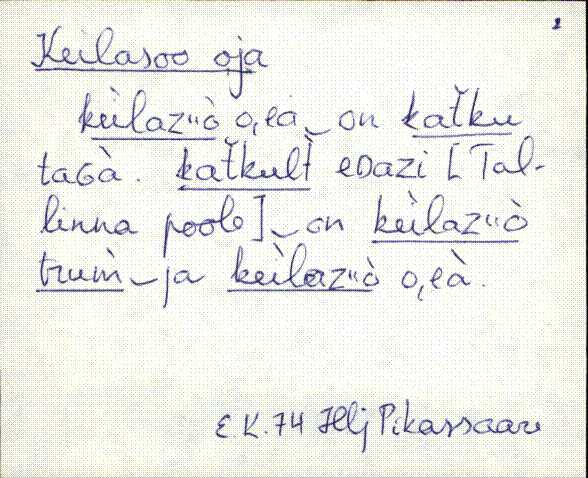 2
Keilasoo oja
kèilazᴜò o̬eà‿on kaťku
taGà. kaťkulť eᴅazi [Tal-
linna poole]‿on kèilazᴜò
trùm̀‿ja kèilazᴜò o̬eà.
E.K.74 Hlj Pikassaar